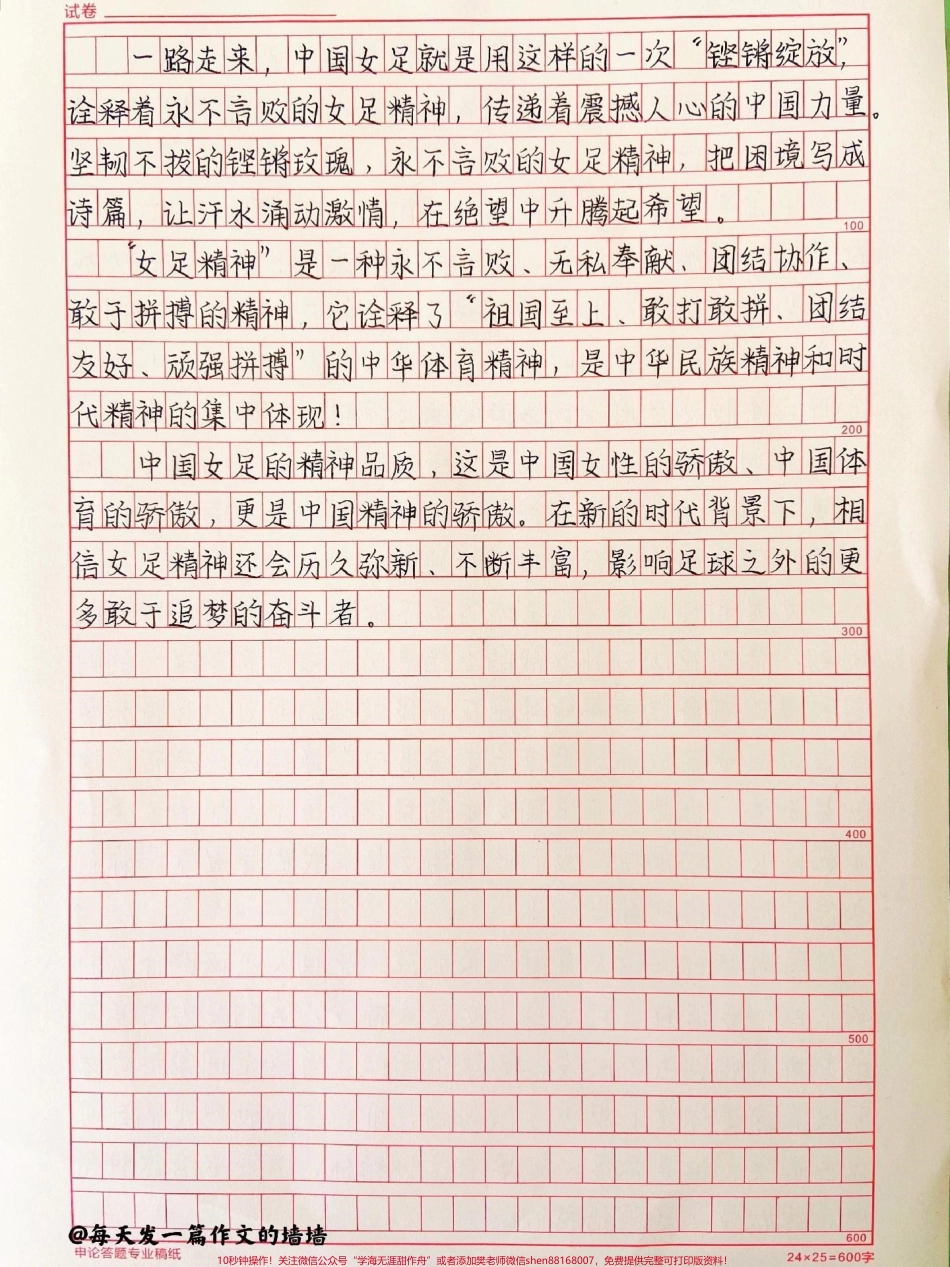 试卷
一路走来，中国女足就是用这样的一次“铿锵绽放”，
诠释着永不言败的女足精神，传递着震撼人心的中国力量。
坚韧不拔的铿锵玫瑰，永不言败的女足精神，把困境写成
诗篇，让汗水涌动激情，在绝望中升腾起希望。
100
“女足精神”是一种永不言败、无私奉献、团结协作、
敢于拼搏的精神，它诠释了“祖国至上、敢打敢拼、团结
友好、顽强拼搏”的中华体育精神，是中华民族精神和时
代精神的集中体现！
200
中国女足的精神品质，这是中国女性的骄傲、中国体
育的骄傲，更是中国精神的骄傲。在新的时代背景下，相
信女足精神还会历久弥新、不断丰富，影响足球之外的更
多敢于追梦的奋斗者。
300
400
500
600
@每天发一篇作文的墙墙
申论答题专业稿纸
24×25=600字
10秒钟操作！关注微信公众号“学海无涯甜作舟”或者添加樊老师微信shen88168007，免费提供完整可打印版资料！